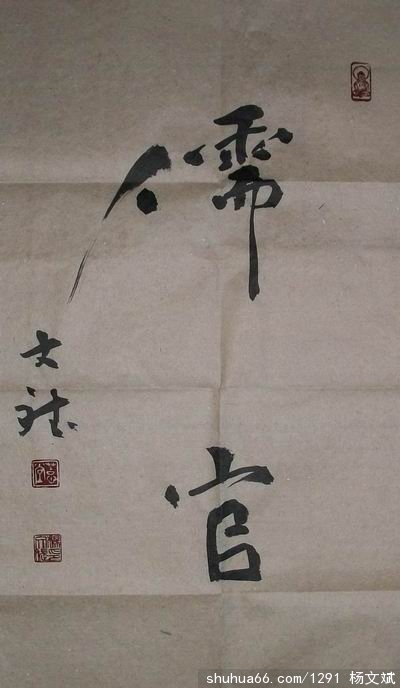 儒官
文斌
shuhua66.com/1291 杨文斌